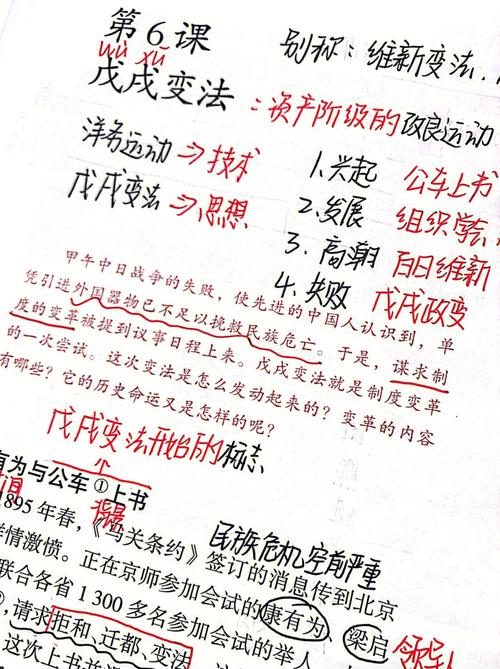 第6课
别称:维新变法
wù xū
戊戌变法:资产阶级的改良运动
洋务运动⇒技术
戊戌变法⇒思想
1.兴起 公车上书
2.发展 组织学会
3.高潮 百日维新
4.失败 戊戌政变
甲午中日战争的失败,使先进的中国人认识到,单
凭引进外国器物已不足以挽救民族危亡。于是,谋求制
度的变革被提到议事日程上来。戊戌变法就是制度变革
的一次尝试。这次变法是怎么发动起来的?变革的内容
有哪些?它的历史命运又是怎样的呢?
戊戌变法开始的标志
有为与公车①上书
民族危机空前严重
1895年春,《马关条约》签订的消息传到北京
群情激愤。正在京师参加会试的康有为、梁启
联合各省1300多名参加会试的举人
请求拒和、迁都、变法
领导
这次上书